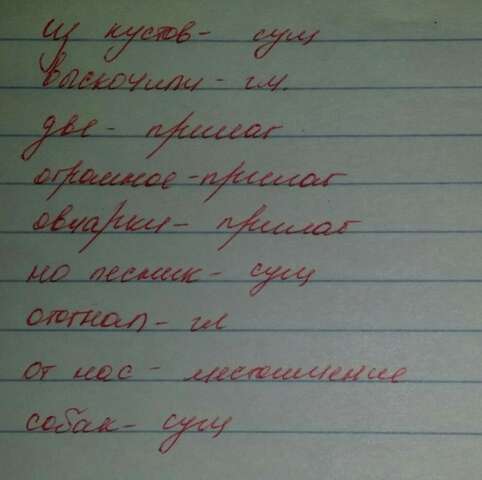 из кустов- сущ
выскочили- гл.
две- прилаг
огромное-прилаг
овчарки- прилаг
но лесник- сущ
отогнал- гл
от нас- местоимение
собак- сущ